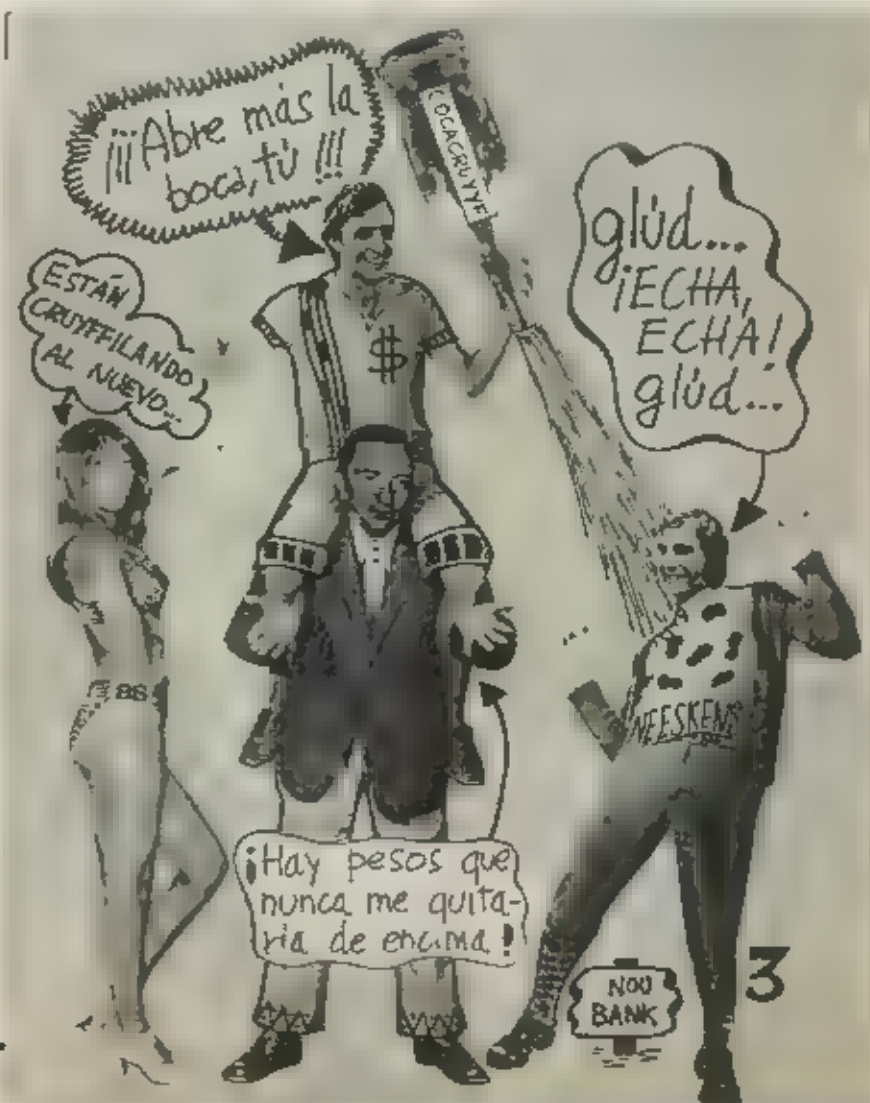 ¡¡¡Abre más la
boca, tú !!!
COCACRUYFF
glúd...
¡ECHA,
ECHA!
glúd...
ESTÁN
CRUYFFILANDO
AL NUEVO...
$
NEESKENS
¡Hay pesos que
nunca me quita-
ría de encima!
NOU
BANK
3